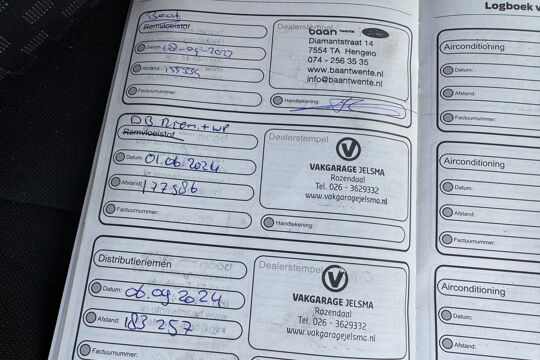 Logboek v
Remvloeistof
Dealerstempel
baan twente
Diamantstraat 14
7554 TA Hengelo
074 - 256 35 35
www.baantwente.nl
info@baantwente.nl
Datum:
Afstand:
Factuurnummer:
Handtekening:
Airconditioning
Datum:
Afstand:
Factuurnummer:
D.B. Riem + WP
Remvloeistof
Dealerstempel
VAKGARAGE JELSMA
Rozendaal
Tel. 026 - 3629332
www.vakgaragejelsma.nl
Datum: 01.06.2024
Afstand: 177986
Factuurnummer:
Handtekening:
Airconditioning
Datum:
Afstand:
Factuurnummer:
Distributieriemen
Dealerstempel
VAKGARAGE JELSMA
Rozendaal
Tel. 026 - 3629332
www.vakgaragejelsma.nl
Datum: 06.09.2024
Afstand: 183 257
Factuurnummer:
Airconditioning
Datum:
Afstand:
Factuurnummer: